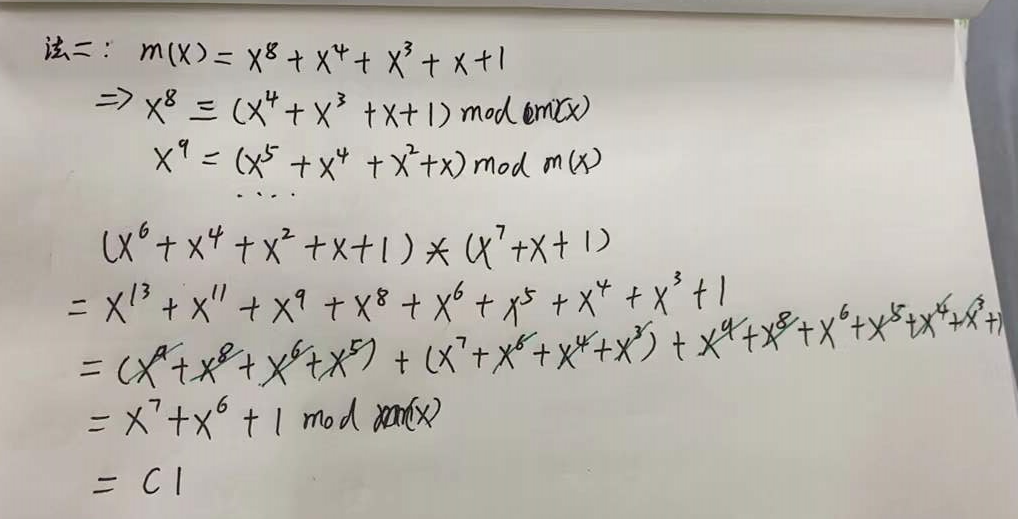 法二: m(x) = x⁸ + x⁴ + x³ + x + 1
=> x⁸ ≡ (x⁴ + x³ + x + 1) mod m(x)
x⁹ = (x⁵ + x⁴ + x² + x) mod m(x)
....
(x⁶ + x⁴ + x² + x + 1) * (x⁷ + x + 1)
= x¹³ + x¹¹ + x⁹ + x⁸ + x⁶ + x⁵ + x⁴ + x³ + 1
= (x⁹ + x⁸ + x⁶ + x⁵) + (x⁷ + x⁶ + x⁴ + x³) + x⁹ + x⁸ + x⁶ + x⁵ + x⁴ + x³ + 1
= x⁷ + x⁶ + 1 mod m(x)
= C1